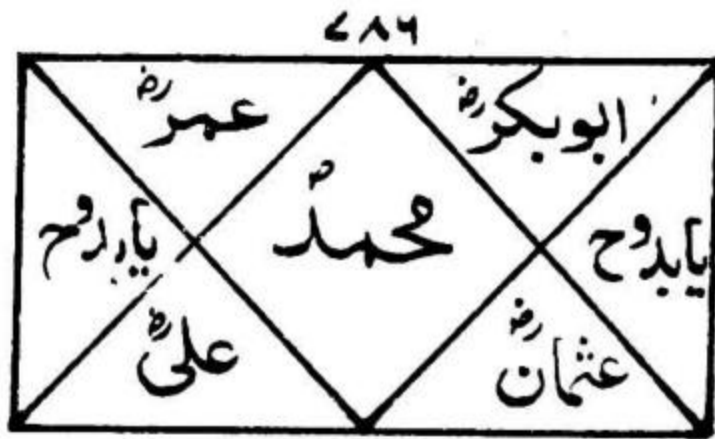 ۷۸۶
ابوبکرؓ عمرؓ
یابدوح محمدؐ یابدوح
عثمانؓ علیؓ